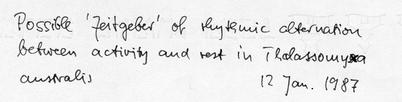 Possible 'Zeitgeber' of rhythmic alternation
between activity and rest in Thalassomyxa
australis 12 Jan. 1987